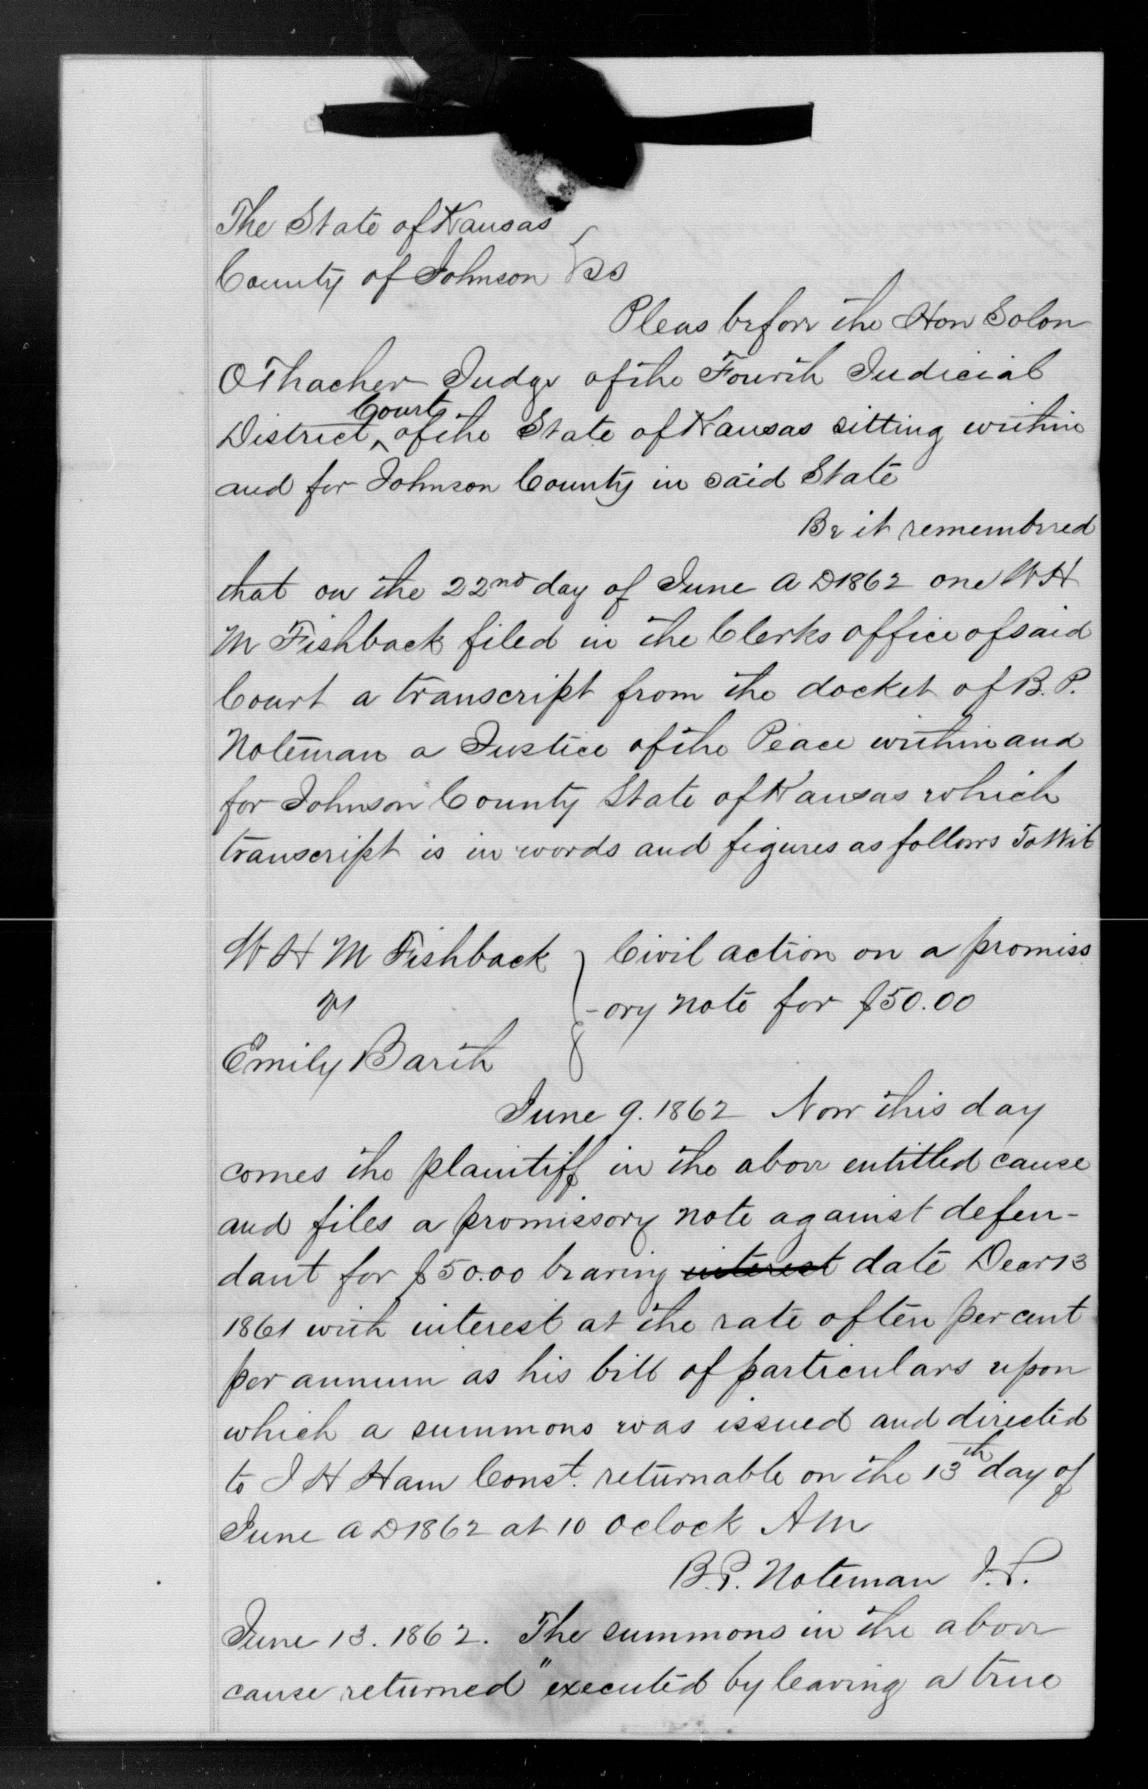 The State of Kansas
County of Johnson } ss
Pleas before the Hon Solon
O Thacher Judge of the Fourth Judicial
District Court of the State of Kansas sitting within
and for Johnson County in said State
Be it remembered
that on the 22nd day of June A D 1862 one W H
M Fishback filed in the Clerks office of said
Court a transcript from the docket of B. P.
Noteman a Justice of the Peace within and
for Johnson County State of Kansas which
transcript is in words and figures as follows To Wit
W H M Fishback } Civil action on a promiss
vs -ory note for $50.00
Emily Barth
June 9. 1862 Now this day
comes the plaintiff in the above entitled cause
and files a promissory note against defen-
dant for $50.00 bearing interest date Decr 13
1861 with interest at the rate of ten per cent
per annum as his bill of particulars upon
which a summons was issued and directed
to J H Ham Const. returnable on the 13th day of
June A D 1862 at 10 oclock AM
B. P. Noteman J. P.
June 13. 1862. The summons in the above
cause returned "executed by leaving a true